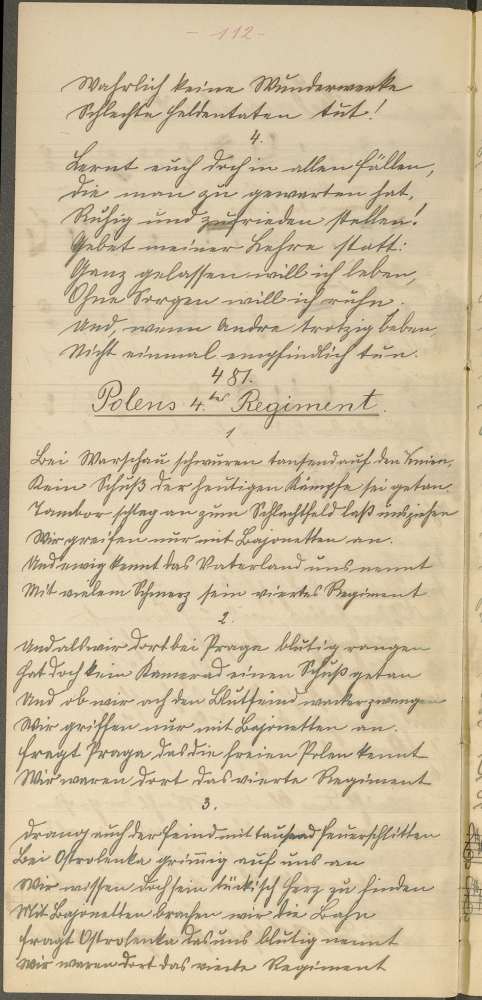 - 112 -
Wahrlich keine Wunderwerke
Schlechte Heldentaten tut!
4.
Lernt euch doch in allen Fällen,
Die man zu gewarten hat,
Ruhig und zufrieden stellen!
Gebet meiner Lehre statt:
Ganz gelassen will ich leben,
Ohne Sorgen will ich ruhn.
Und, wenn Andre trotzig beben,
Nicht einmal empfindlich tun.
481.
Polens 4.tes Regiment.
1
Bei Warschau schwuren tausend auf den Knien,
Kein Schuß der heutigen Kämpfe sei getan.
Tambor schlag an zum Schlachtfeld laß uns ziehen
Wir greifen nur mit Bajonetten an.
Und ewig kennt das Vaterland uns nennt
Mit vielem Schmerz sein viertes Regiment
2.
Und als wir dort bei Praga blutig rangen
Hat doch kein Kamerad einen Schuß getan
Und ob wir och den Blutfeind wacker zwangen
Wir griffen nur mit Bajonetten an.
Fragt Praga, das die freien Polen kennt
Wir waren dort das vierte Regiment
3.
Drang auch der Feind mit tausend Feuerschlitten
Bei Ostrolenka grimmig auf uns an
Wir wissen doch sein tückisch Herz zu finden
Mit Bajonetten brachen wir die Bahn
Fragt Ostrolenka das uns blutig nennt
Wir waren dort das vierte Regiment